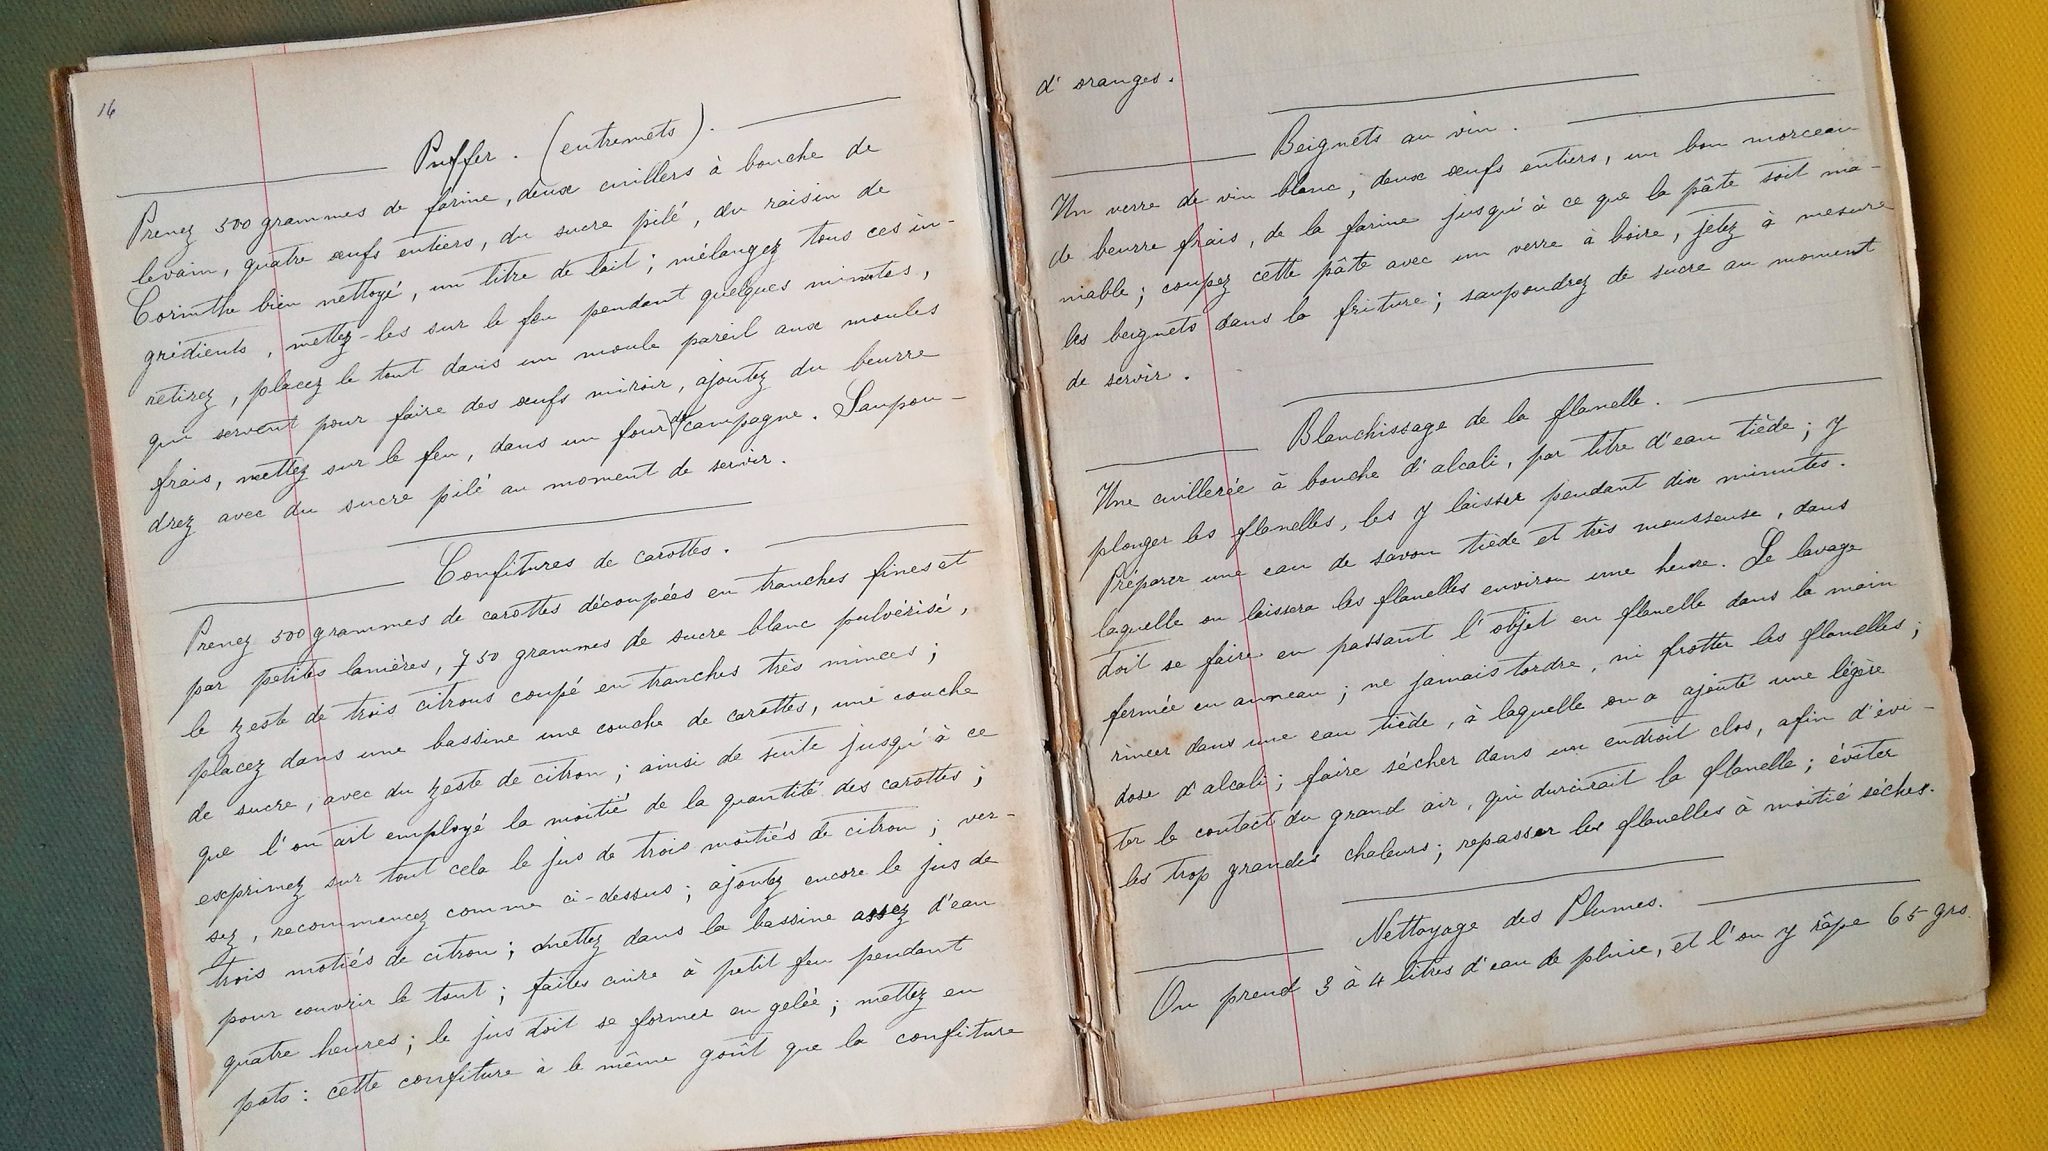 16
Puffer. (entremets).
Prenez 500 grammes de farine, deux cuillers à bouche de
levain, quatre œufs entiers, du sucre pilé, du raisin de
Corinthe bien nettoyé, un litre de lait; mélangez tous ces in-
grédients, mettez-les sur le feu pendant quelques minutes,
retirez, placez le tout dans un moule pareil aux moules
qui servent pour faire des œufs miroir, ajoutez du beurre
frais, mettez sur le feu, dans un four de campagne. Saupou-
drez avec du sucre pilé au moment de servir.
Confitures de carottes.
Prenez 500 grammes de carottes découpées en tranches fines et
par petites lanières, 750 grammes de sucre blanc pulvérisé,
le zeste de trois citrons coupé en tranches très minces;
placez dans une bassine une couche de carottes, une couche
de sucre, avec du zeste de citron; ainsi de suite jusqu'à ce
que l'on ait employé la moitié de la quantité des carottes;
exprimez sur tout cela le jus de trois moitiés de citron; ver-
sez, recommencez comme ci-dessus; ajoutez encore le jus de
trois motiés de citron; mettez dans la bassine assez d'eau
pour couvrir le tout; faites cuire à petit feu pendant
quatre heures; le jus doit se former en gelée; mettez en
pots: cette confiture à le même goût que la confiture
d'oranges.
Beignets au vin.
Un verre de vin blanc, deux œufs entiers, un bon morceau
de beurre frais, de la farine jusqu'à ce que la pâte soit ma-
niable; coupez cette pâte avec un verre à boire, jetez à mesure
les beignets dans la friture; saupoudrez de sucre au moment
de servir.
Blanchissage de la flanelle.
Une cuillerée à bouche d'alcali, par litre d'eau tiède; y
plonger les flanelles, les y laisser pendant dix minutes.
Préparer une eau de savon tiède et très mousseuse, dans
laquelle on laissera les flanelles environ une heure. Le lavage
doit se faire en passant l'objet en flanelle dans la main
fermée en anneau; ne jamais tordre, ni frotter les flanelles;
rincer dans une eau tiède, à laquelle on a ajouté une légère
dose d'alcali; faire sécher dans un endroit clos, afin d'évi-
ter le contact du grand air, qui durcirait la flanelle; éviter
les trop grandes chaleurs; repasser les flanelles à moitié sèches.
Nettoyage des Plumes.
On prend 3 à 4 litres d'eau de pluie, et l'on y râpe 65 grs.